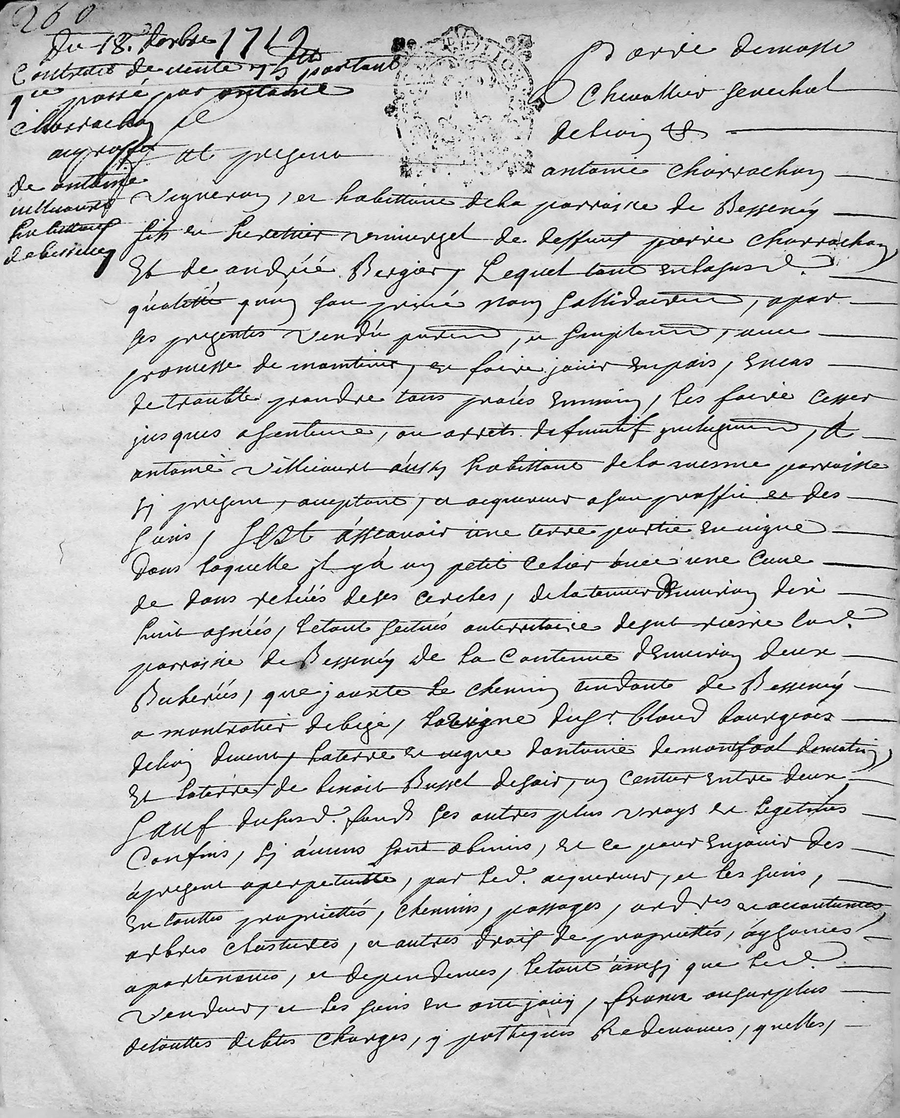 260
Du 18e Xbre 1719
Contract de vente
passé par antoine
Charrachon
de antoine
villicourt
habittant
de bessenay
Chevallier senechal
de lion &
fut present
antoine Charrachon
vigneron, et habittant de la parroisse de Bessenay
fils et heretier universel de deffunt pierre Charrachon
Et de andrée Bergier, Lequel tant en la susd.
qualitté qu'en son privé nom sollidairem , a par
ses presentes vendu purem , et simplem , avec
promesse de maintenir, et faire jouir en paix, en cas
de trouble prendre tous procés en main, les faire cesser
jusques a sentence, ou arrets definitif , A
antoine villicourt aussy habittant de la mesme parroisse
sy present, aceptant, et acquereur a son proffit et des
siens, SCest assavoir une terre partie en vigne
dans laquelle il y a un petit celier avec une cuve
de dans reliée de ses cercles, de la teneur d'environ dix
huit asnées, le tout scitués au territoire de rierre lad.
parroisse de Bessenay de la contenue d'environ deux
Bicherées, que jouxte le chemin tendant de Bessenay
a montrotier de bize, la vigne du Sr bloud bourgeois
de lion de vent, la terre et vigne d'antoine de montfoal de matin,
Et la terre de benoit Bussel de soir, un centier entre deux
Sauf du susd. fonds ses autres plus vrays et legetimes
Confins, sy aucuns sont obmis, et ce pour en jouir des
apresent a perpetuitté, par led. acquereur, et les siens,
En touttes propriettés, chemins, passages, ordres et acoutumés
arbres clostures, et autres droits de propriettés, aysances
apartenances, et dependences, le tout ainsy que led.
vendeur, et les siens en ont jouy, franc au surplus
de touttes debtes charges, ypotheques Redevances, quelles,